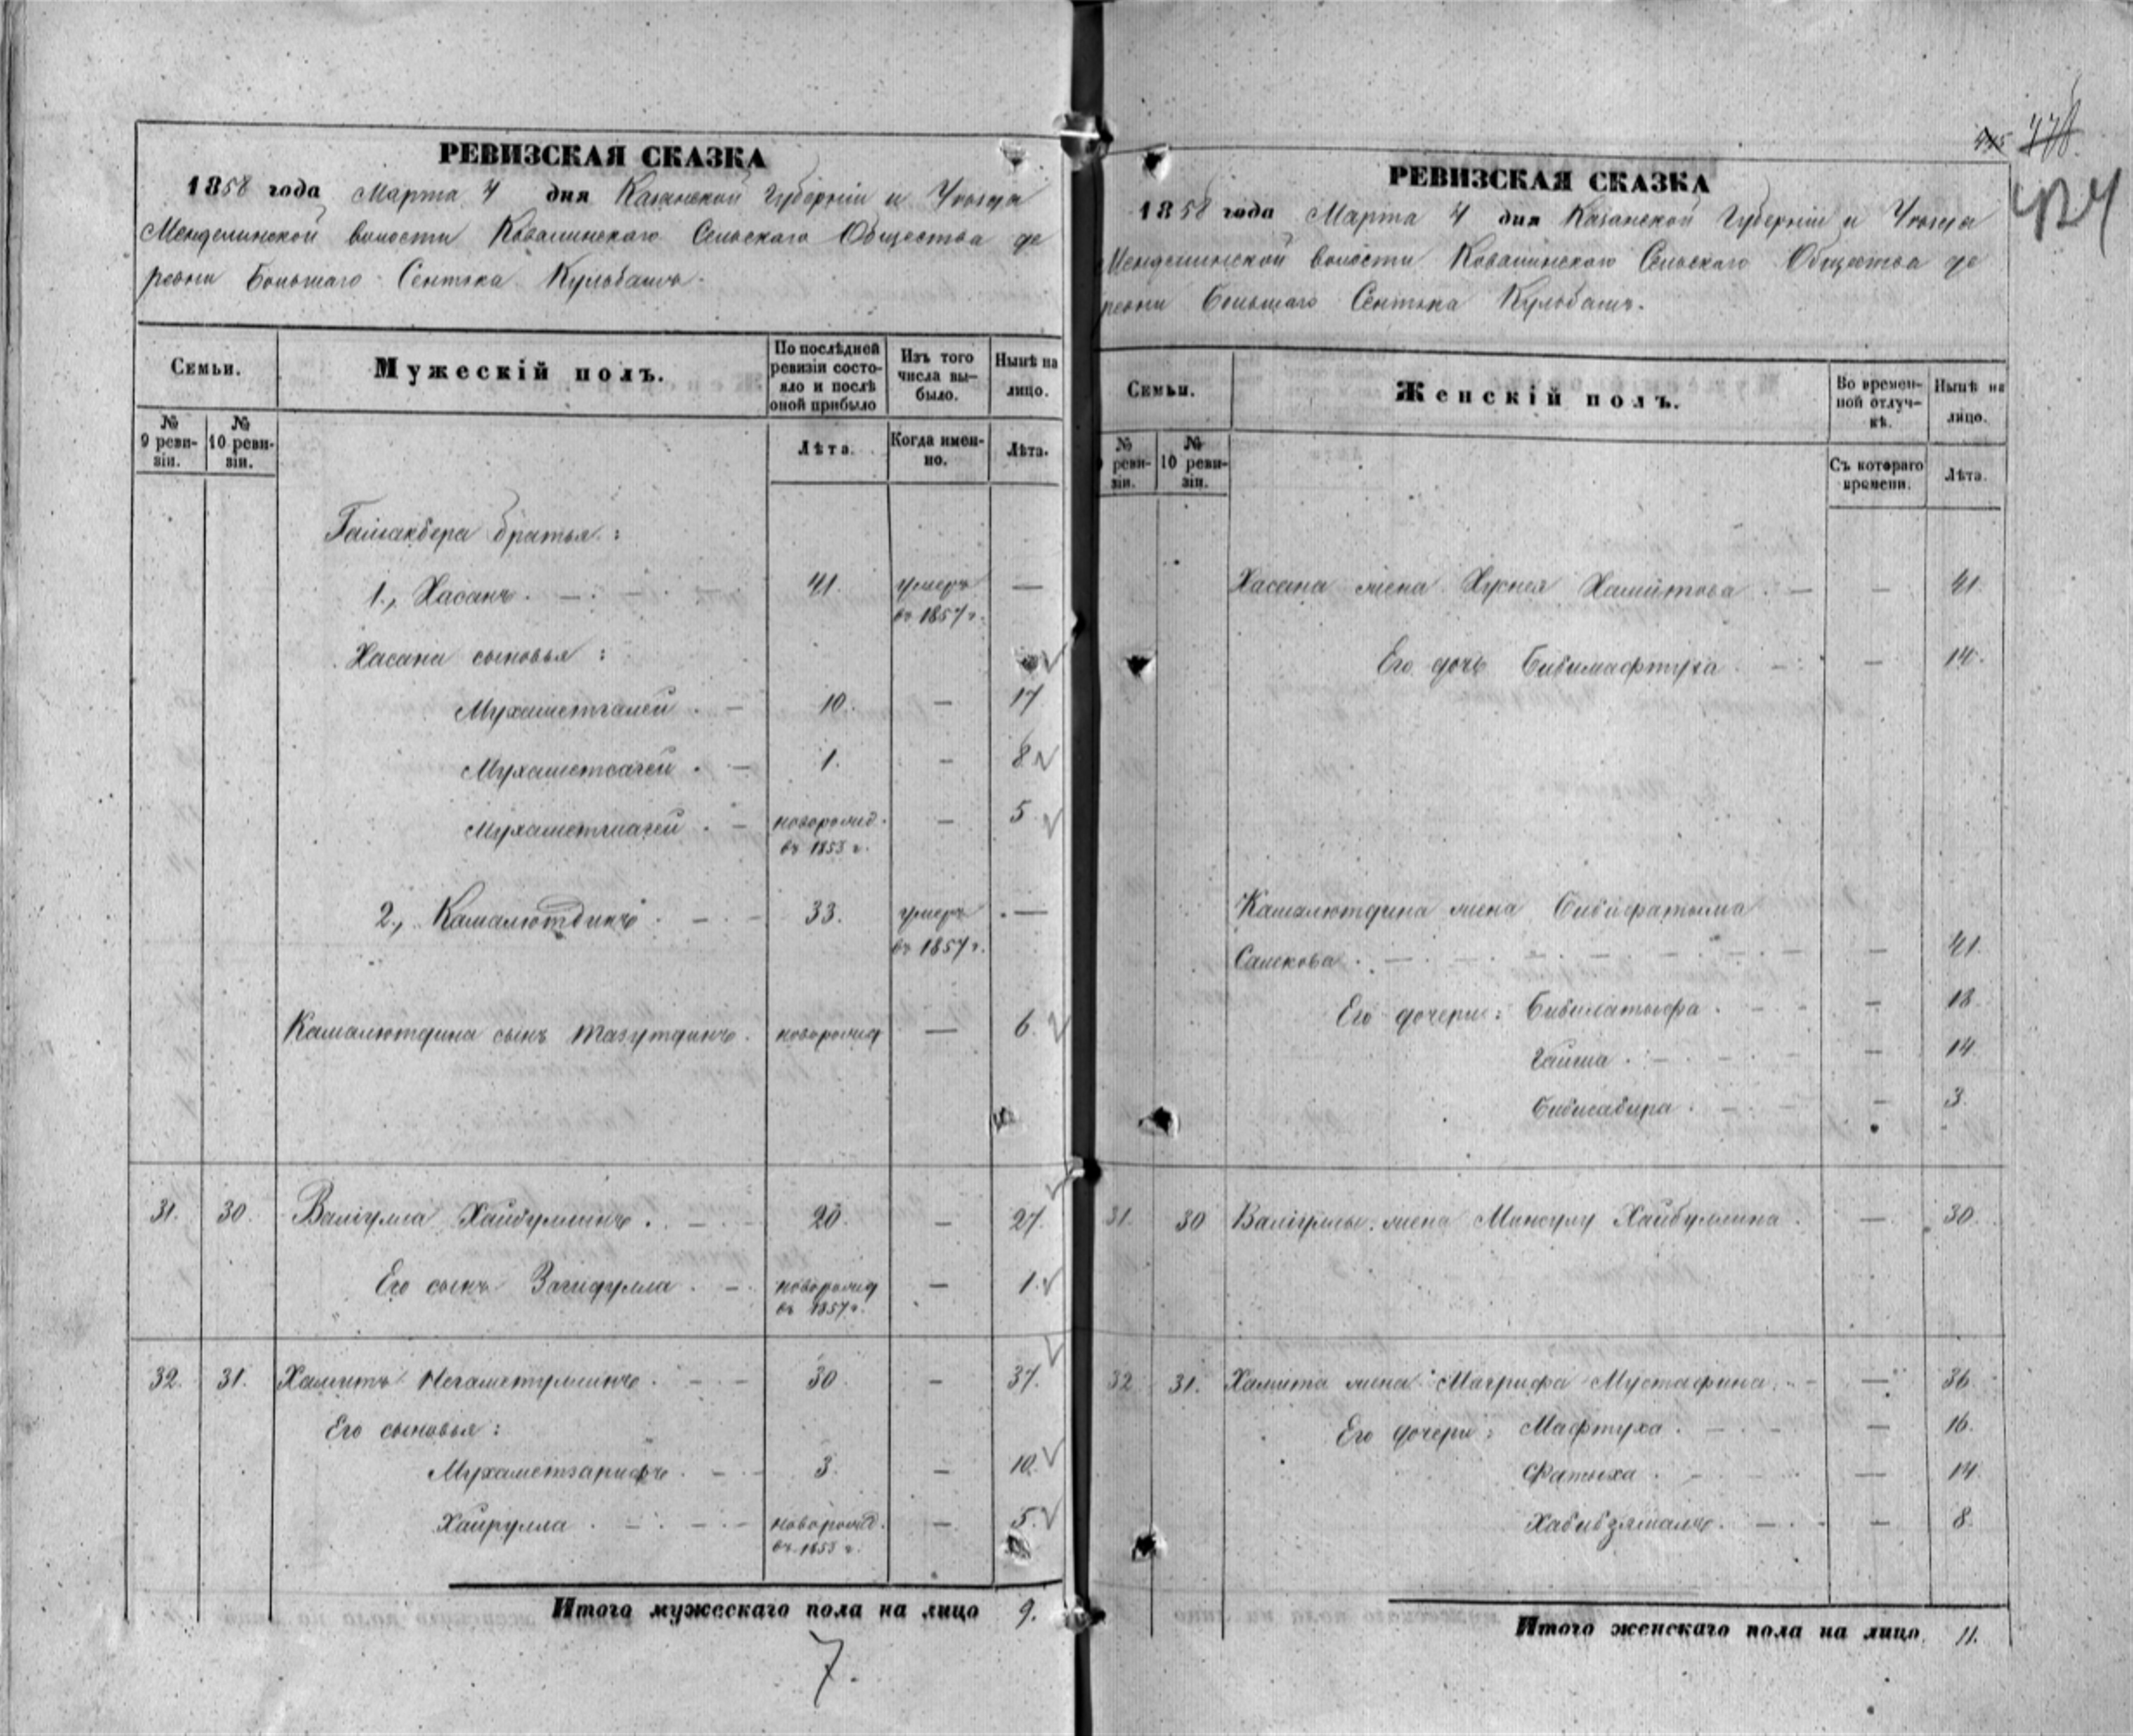 РЕВИЗСКАЯ СКАЗКА
1858 года Марта 4 дня Казанской Губерніи и Уѣзда
Менделинской волости Ковалинскаго Сельскаго Общества де
ревни Большаго Сентяка Кульбашъ.
Семьи.
Мужескій полъ.
По послѣдней ревизіи состояло и послѣ оной прибыло
Изъ того числа выбыло.
Нынѣ на лицо.
№ 9 ревизіи.
№ 10 ревизіи.
Лѣта.
Когда именно.
Лѣта.
Галіакбера братья:
1., Хасанъ. 41. умеръ въ 1857 г. —
Хасана сыновья:
Мухаметгалей . — 10. — 17
Мухаметсагей . — 1. — 8
новорожд. въ 1853 г. — 5
2., Камалютдинъ . — 33. умеръ въ 1857 г. —
Камалютдина сынъ Тазутдинъ . новорожд — 6.
31. 30. Валіулла Хайбуллинъ . — 20. — 27.
Его сынъ Загидулла . — новорожд въ 1857 г. — 1.
32. 31. Хамитъ Негаметуллинъ . — 30 — 37.
Его сыновья:
Мухаметзарифъ . — 3. — 10.
Хайрулла . — новорожд. въ 1853 г. — 5.
Итого мужескаго пола на лицо 9.
7.
РЕВИЗСКАЯ СКАЗКА
1858 года Марта 4 дня Казанской Губерніи и Уѣзда
Менделинской волости Ковалинскаго Сельскаго Общества де
ревни Большаго Сентяка Кульбашъ.
Семьи.
Женскій полъ.
Во временной отлучкѣ.
Нынѣ на лицо.
№ ревизіи.
№ 10 ревизіи.
Съ котораго времени.
Лѣта.
Хасана жена Хуснея Хамитова . — — 41.
Его дочь Бибимафтуха . — — 14.
Камалютдина жена Бибифатыма
Салекова . — — 41.
Его дочери: Бибилатыфа . — — 18.
Гайша . — — 14
Бибисабира . — — 3.
31. 30 Валіуллы жена Хайбуллина . — 30.
32 31. Хамита жена Магрифа Мустафина . — — 36
Его дочери: Мафтуха . — — 16.
Фатыха . — — 14.
Хабибзямалъ . — — 8.
Итого женскаго пола на лицо 11.